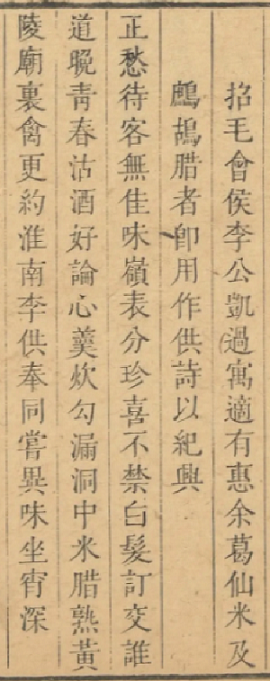 招毛會侯李公凱過寓適有惠余葛仙米及
鷓鴣腊者卽用作供詩以紀興
正愁待客無佳味嶺表分珍喜不禁白髮訂交誰
道晚青春沽酒好論心羹炊勾漏洞中米腊熟黃
陵廟裏禽更約淮南李供奉同嘗異味坐宵深